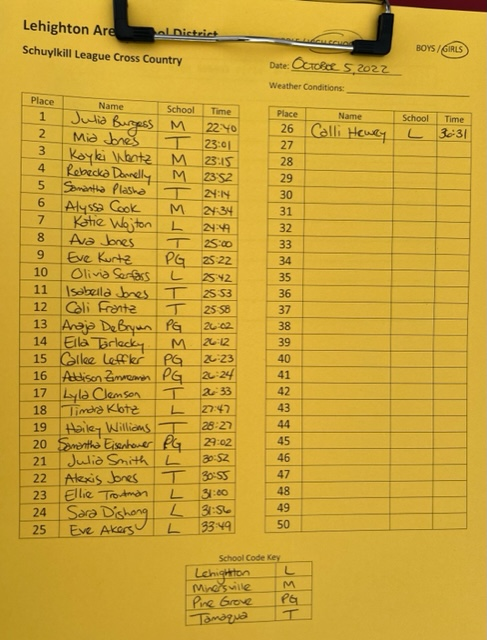 Lehighton Area School District
Schuylkill League Cross Country
BOYS / GIRLS
Date: OCTOBER 5, 2022
Weather Conditions:
Place Name School Time
1 Julia Burgess M 22:40
2 Mia Jones T 23:01
3 Kaylei Wentz M 23:15
4 Rebecka Donnelly M 23:52
5 Samantha Plasha T 24:14
6 Alyssa Cook M 24:34
7 Katie Wojton L 24:49
8 Ava Jones T 25:00
9 Eve Kurtz PG 25:22
10 Olivia Serfass L 25:42
11 Isabella Jones T 25:53
12 Cali Frantz T 25:58
13 Anaja DeBryun PG 26:02
14 Ella Tarlecky M 26:12
15 Callee Leffler PG 26:23
16 Addison Zimmerman PG 26:24
17 Lyla Clemson T 26:33
18 Timara Klotz L 27:47
19 Hailey Williams T 28:27
20 Samantha Eisenhauer PG 29:02
21 Julia Smith L 30:52
22 Alexis Jones T 30:55
23 Ellie Troutman L 31:00
24 Sara Dishong L 31:56
25 Eve Akers L 33:49
Place Name School Time
26 Calli Hewey L 36:31
27
28
29
30
31
32
33
34
35
36
37
38
39
40
41
42
43
44
45
46
47
48
49
50
School Code Key
Lehighton L
Minersville M
Pine Grove PG
Tamaqua T